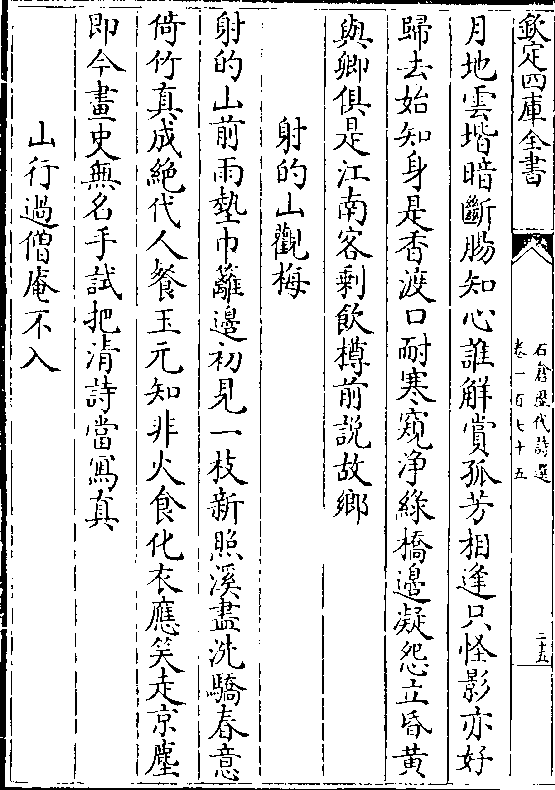 欽定四庫全書
石倉歷代詩選
卷一百七十五
二十五
月地雲堦暗斷腸知心誰解賞孤芳相逢只怪影亦好
歸去始知身是香渡口耐寒窺净綠橋邊凝怨立昏黄
與卿俱是江南客剩飲樽前説故鄉
射的山觀梅
射的山前雨墊巾籬邊初見一枝新照溪盡洗驕春意
倚竹真成絶代人餐玉元知非火食化衣應笑走京塵
即今畫史無名手試把清詩當寫真
山行過僧庵不入